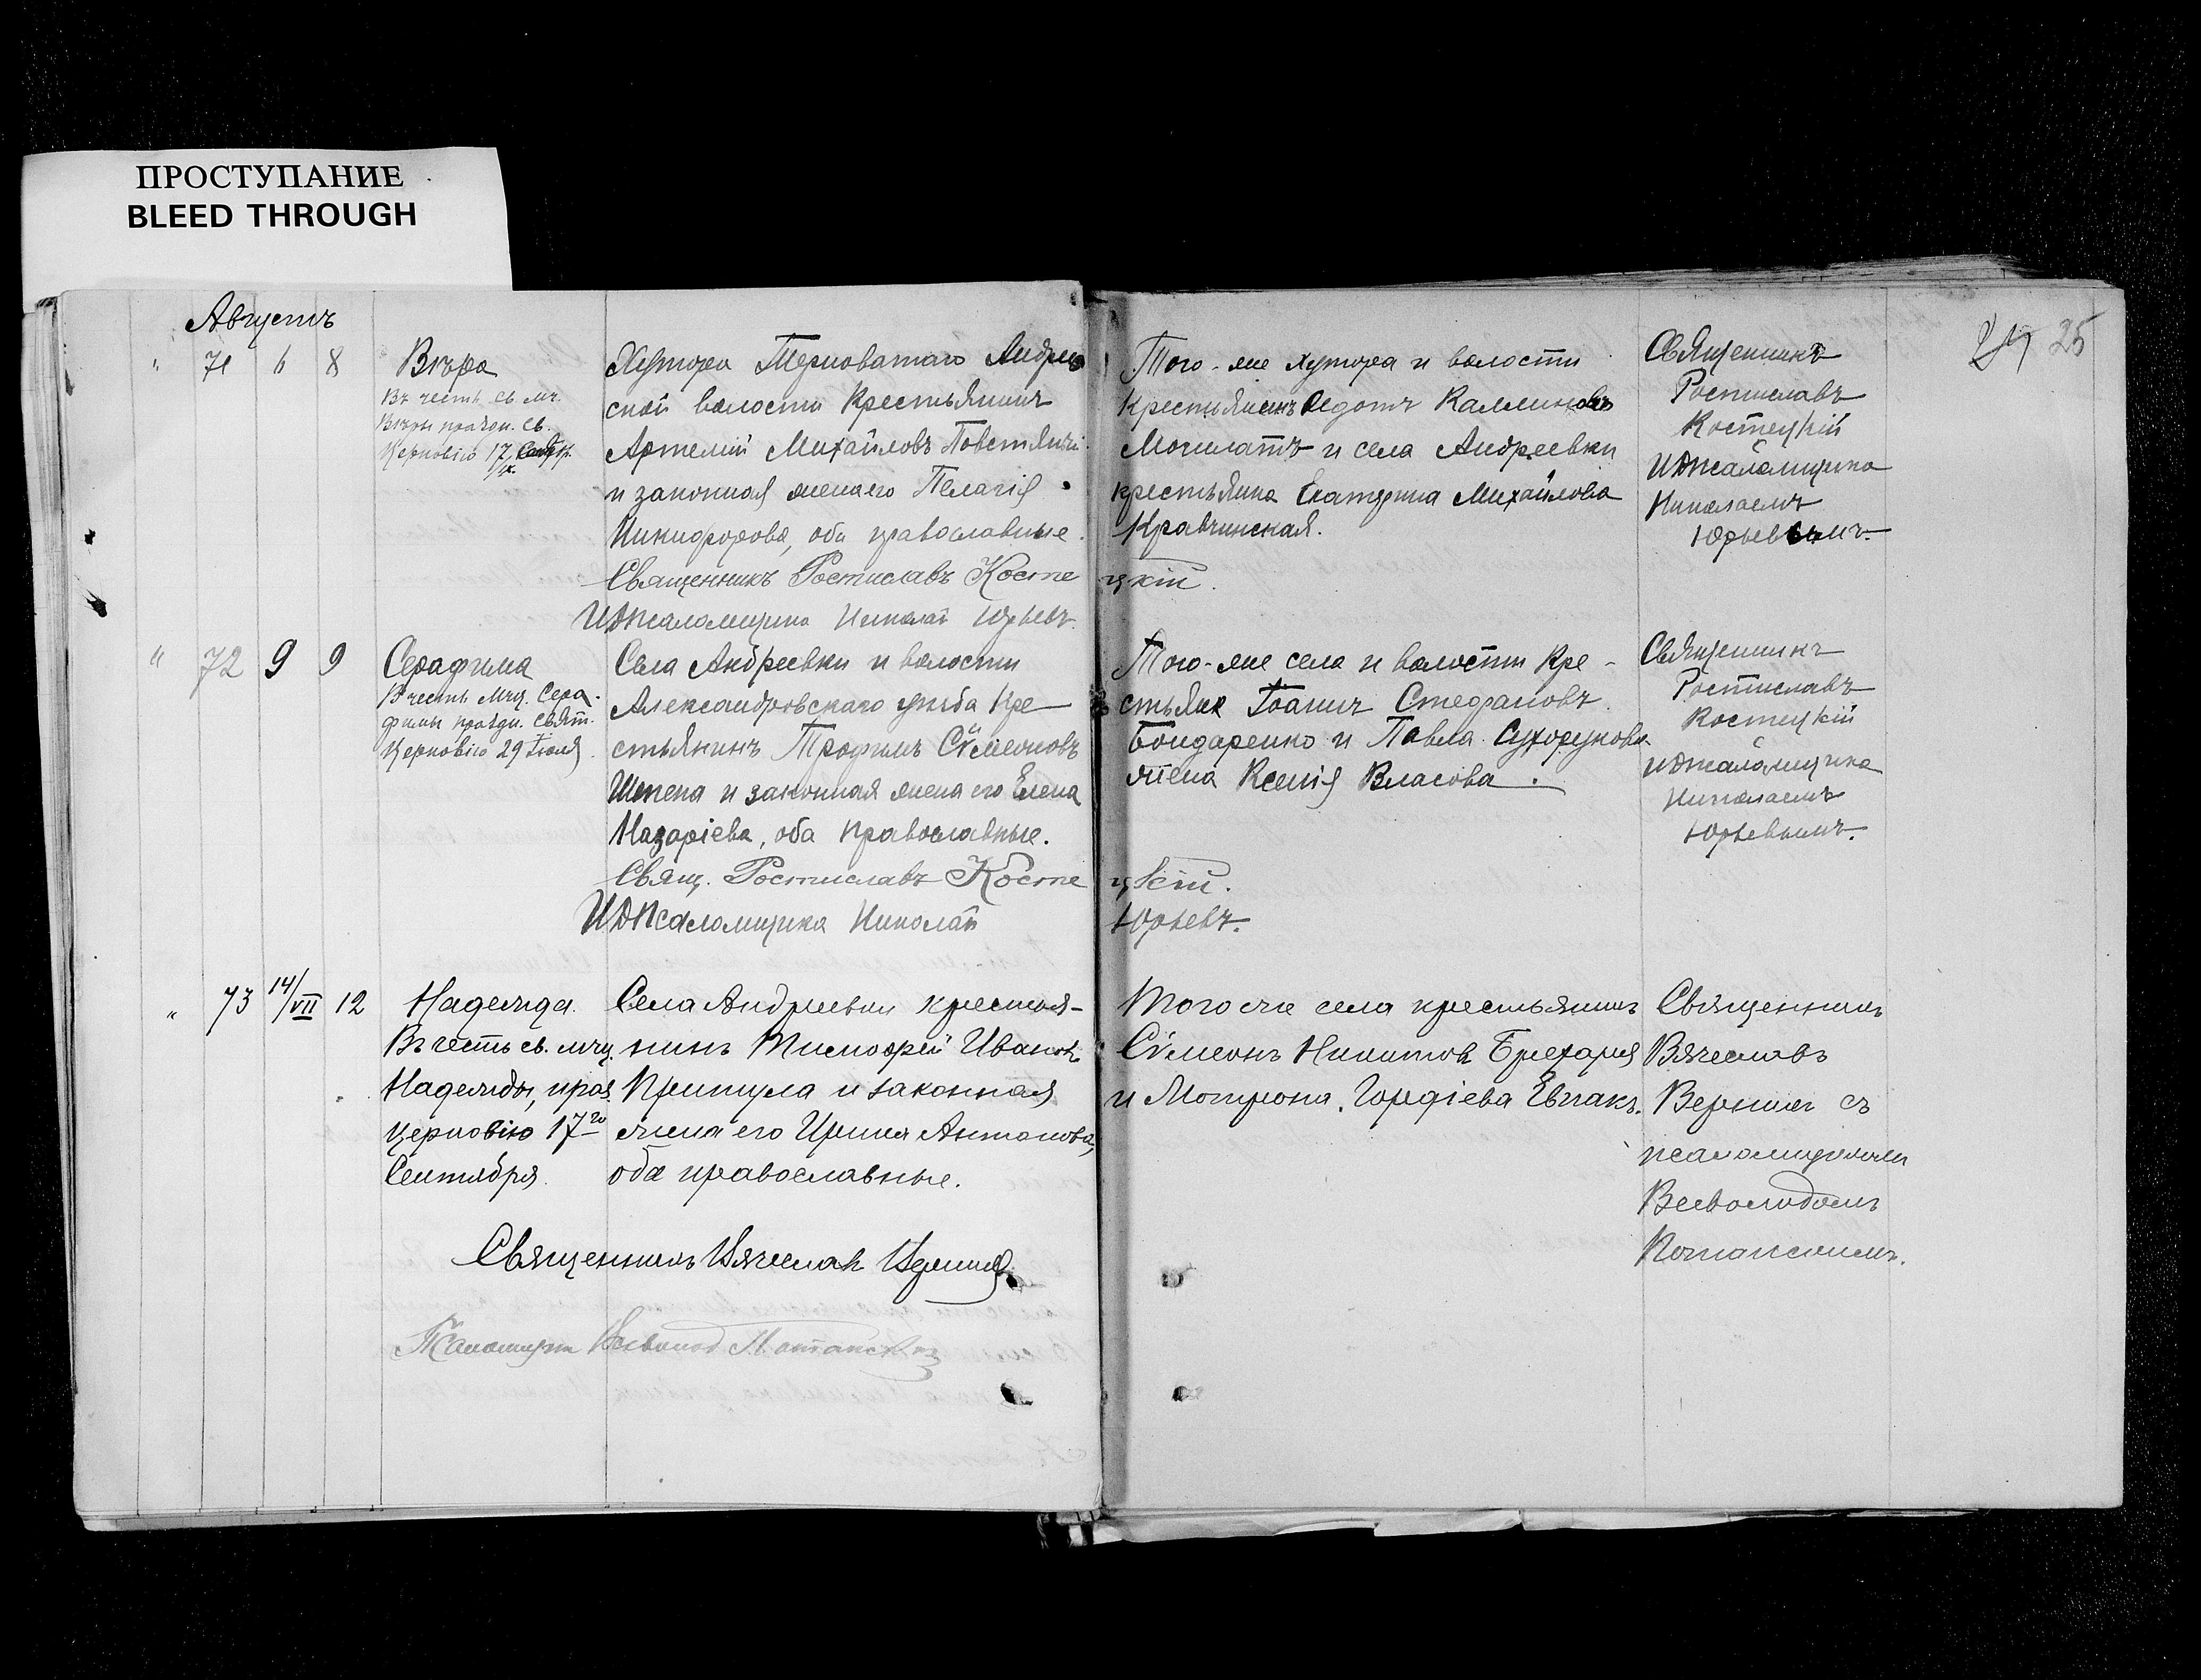 ПРОСТУПАНИЕ
BLEED THROUGH
25
Августъ
" 71 6 8
Вѣра
Въ честь св. мч.
Вѣры праздн. св.
Церковію 17
Хутора Терноватаго Андре
ской волости крестьянинъ
Артемій Михайловъ
и законная жена его Пелагія
Никифорова, оба православные.
Священникъ Ростиславъ Косте
цкій.
И Д Псаломщика Николай Юрьевъ.
Того-же хутора и волости
крестьянинъ Федотъ Каллиновъ
Могилатъ и села Андреевки
крестьянка Екатерина Михайлова
Кравчинская.
Священникъ
Ростиславъ
Костецкій
И Д Псаломщика
Николаемъ
Юрьевымъ.
" 72 9 9
Серафима
В честь мчц. Сера-
фимы праздн. Свят.
Церковію 29 Іюля
Села Андреевки и волости
Александровскаго уѣзда кре
стьянинъ Трофимъ Сѵмеоновъ
Шепепа и законная жена его Елена
Назаріева, оба православные.
Свящ. Ростиславъ Косте
цкій.
И Д Псаломщика Николай
Юрьевъ.
Того-же села и волости кре-
стьяне Іоаннъ Стефановъ
Бондаренко и Павла Сухорукова
жена Ксенія Власова.
Священникъ
Ростиславъ
Костецкій
И Д Псаломщика
Николаемъ
Юрьевымъ.
" 73 14/VII 12
Надежда.
Въ честь св. мчц.
Надежды, праз.
церковію 17го
Сентября.
Села Андреевки крестья-
нинъ Тимофей Ивановъ
Притула и законная
жена его Ирина Антонова,
оба православные.
Того же села крестьянинъ
Сѵмеонъ Никитовъ Брехаря
и Мотрона Гордіева Евпакъ.
Священникъ
Вячеславъ
съ
псаломщикомъ
Всеволодомъ
Потапскимъ.
Священникъ Вячеславъ
Псаломщикъ Всеволод Потапскій